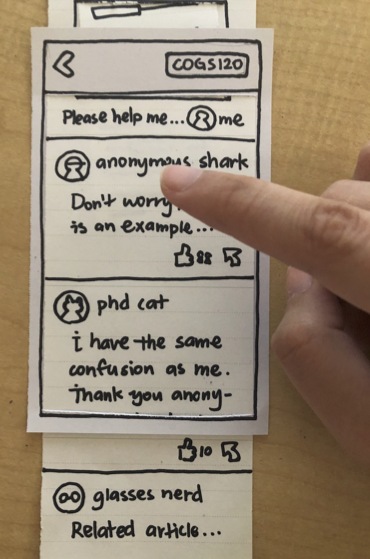 COGS120
Please help me... me
anonymous shark
Don't worry
is an example...
88
phd cat
i have the same
confusion as me.
Thank you anony-
10
glasses nerd
Related article...